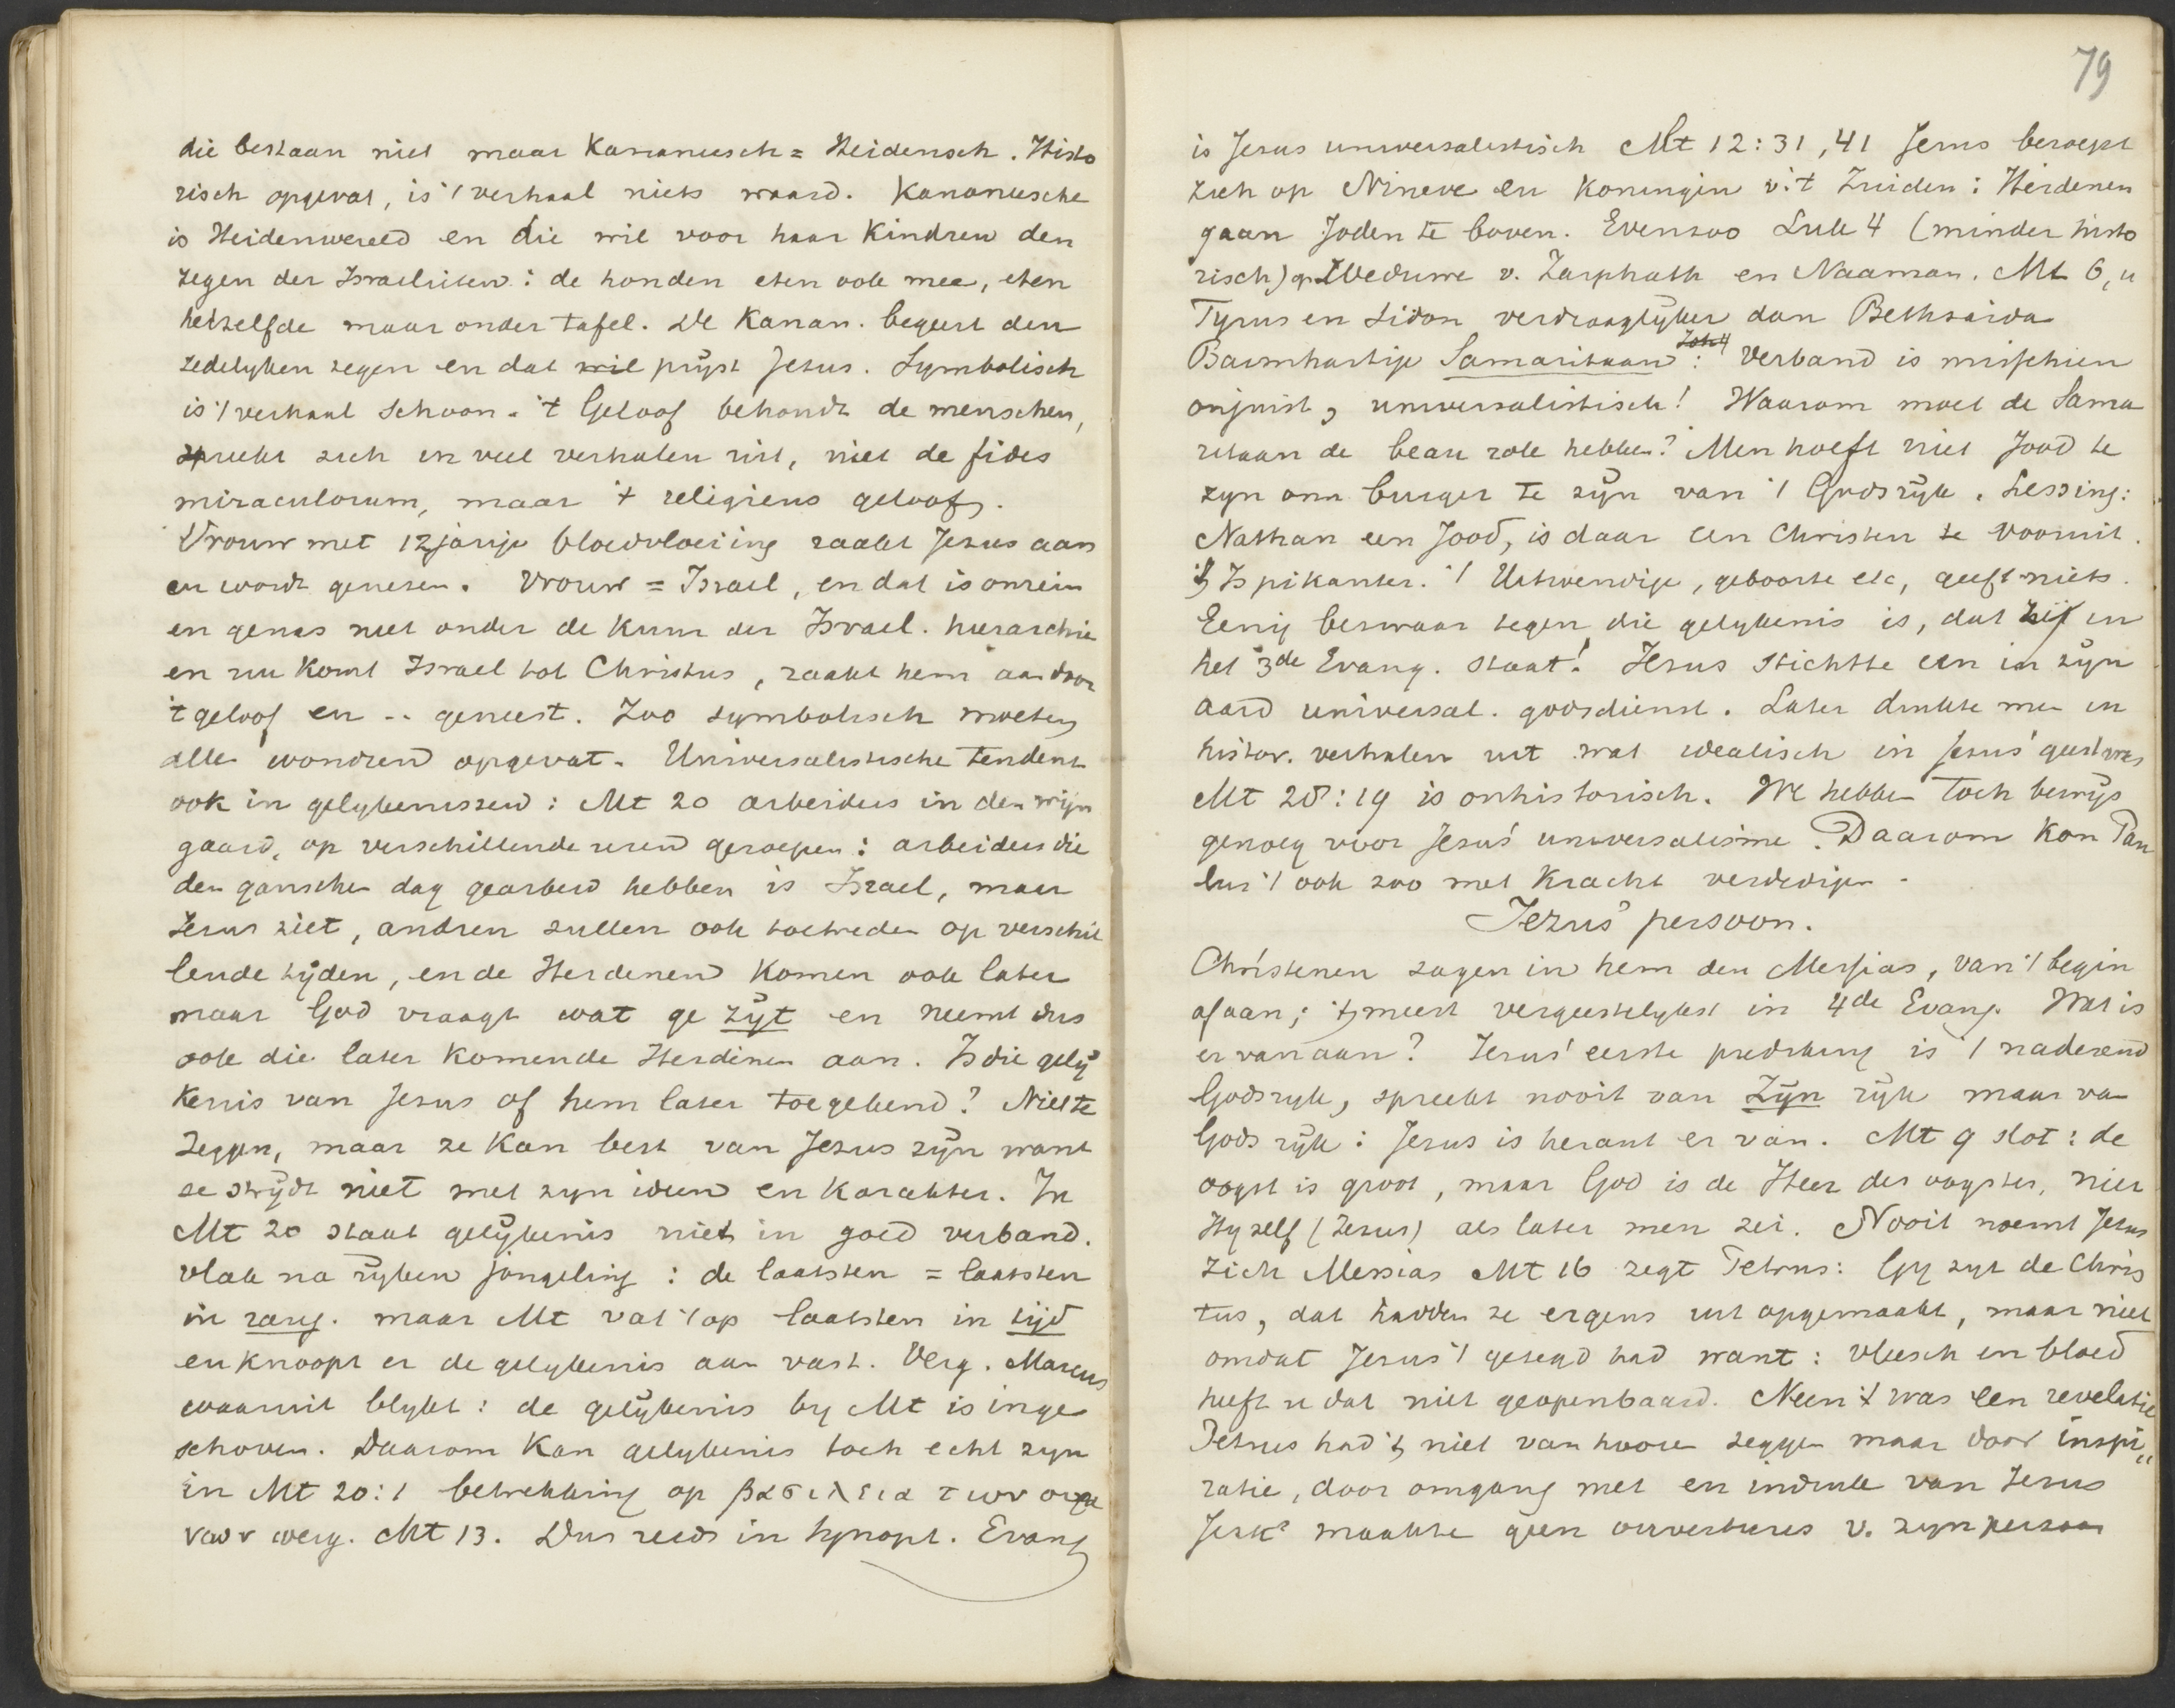 die bestaan niet maar Kananeesch = Heidensch. Histo
risch opgevat, is 't verhaal niets waard. Kananeesche
is Heidenwereld en die wil voor haar Kindren den
zegen der Israelieten: de honden eten ook mee, eten
hetzelfde maar onder tafel. De Kanan. begeert den
zedelyken zegen en dat wil pryst Jesus. Symbolisch
is 't verhaal schoon. 't Geloof behoudt de menschen,
spreekt zich in veel verhalen uit, niet de fides
miraculorum, maar 't religieus geloof.
Vrouw met 12jarige bloedvloeiing raakt Jezus aan
en wordt genezen. Vrouw = Israel, en dat is onrein
en genas niet onder de kuur der Israel. hierarchie
en nu komt Israel tot Christus, raakt hem aan door
't geloof en .. geneest. Zoo symbolisch moeten
alle wondren opgevat. Universalistische tendenz
ook in gelykenissen: Mt 20 arbeiders in den wijn
gaard, op verschillende uren geroepen: arbeiders die
den ganschen dag gearbeid hebben is Israel, maar
Jesus ziet, andren zullen ook toetreden op verschil
lende tyden, en de Heidenen komen ook later
maar God vraagt wat ge zyt en neemt dus
ook die later komende Heidenen aan. Is die gely
kenis van Jesus of hem later toegekend? Niet te
zeggen, maar ze kan best van Jezus zyn want
ze strydt niet met zyn ideen en karakter. In
Mt 20 staat gelykenis niet in goed verband.
vlak na ryken jongeling: de laatsten = laatsten
in rang. maar Mt vat 't op laatsten in tijd
en knoopt er de gelykenis aan vast. Verg. Marcus
waaruit blykt: de gelykenis by Mt is inge
schoven. Daarom kan gelykenis toch echt zyn
in Mt 20:1 betrekking op βασιλεια των ουρα
νων verg. Mt 13. Dus reeds in Synopt. Evang
79
is Jesus universalistisch Mt 12:31,41 Jesus beroept
zich op Nineve en Koningin v. 't Zuiden: Heidenen
gaan Joden te boven. Evenzoo Luk 4 (minder histo
risch) op Weduwe v. Zarphath en Naaman. Mt
Tyrus en Sidon verdraaglyker dan Bethsaida
Barmhartige Samaritaan: Verband is misschien
onjuist, universalistisch! Waarom moet de Sama
ritaan de beau role hebben? Men hoeft niet Jood te
zyn om burger te zyn van 't Godsryk. Lessing:
Nathan een Jood, is daar een Christen te vooruit.
't Is pikanter. 't Uitwendige, geboorte etc, geeft niets.
Eenig bezwaar tegen die gelykenis is, dat zij in
het 3de Evang. staat! Jesus stichtte een in zyn
aard universal. godsdienst. Later drukte men in
histor. verhalen uit wat idealisch in Jesus' geest was
Mt 28:19 is onhistorisch. We hebben toch bewys
genoeg voor Jesus' universalisme. Daarom kon Pau
lus 't ook zoo met kracht verdedigen.
Jezus' persoon.
Christenen zagen in hem den Messias, van 't begin
af aan; 't meest vergeestelykst in 4de Evang. Wat is
er van aan? Jesus' eerste prediking is 't naderend
Godsryk, spreekt nooit van Zyn ryk maar van
Gods ryk: Jesus is heraut er van. Mt 9 slot: de
oogst is groot, maar God is de Heer des oogstes, niet
Hyzelf (Jesus) als later men zei. Nooit noemt Jesus
zich Messias Mt 16 zegt Petrus: Gy zyt de Chris
tus, dat hadden ze ergens uit opgemaakt, maar niet
omdat Jesus 't gezegd had want: vleesch en bloed
heeft u dat niet geopenbaard. Neen 't was een revelatie
Petrus had 't niet van hooren zeggen maar door inspi„
ratie, door omgang met en indruk van Jesus
maakte geen v. zyn persoon